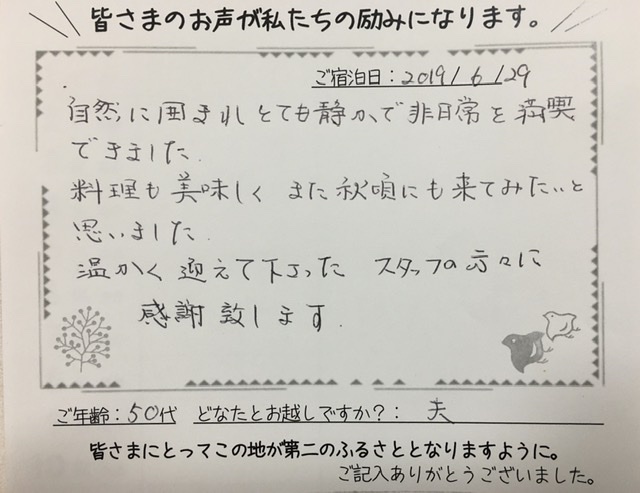 皆さまのお声が私たちの励みになります。
ご宿泊日：2019/6/29
自然に囲まれとても静かで非日常を満喫
できました.
料理も美味しく また秋頃にも来てみたいと
思いました.
温かく迎えて下さった スタッフの方々に
感謝致します.
ご年齢：50代 どなたとお越しですか？： 夫
皆さまにとってこの地が第二のふるさととなりますように。
ご記入ありがとうございました。